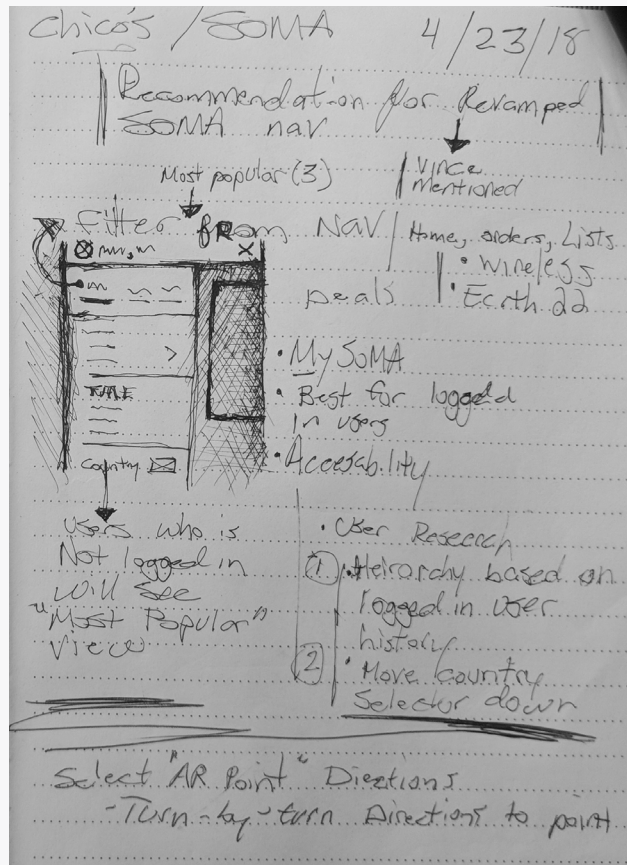 Chico's / SOMA 4/23/18
Recommendation for Revamped
SOMA nav
Most popular (3)
Vince
mentioned
Filter from Nav
Home, orders, Lists
• Wireless
Deals
• MySOMA
• Best for logged
in users
• Accesability
TITLE
Country
Users who is
Not logged in
will see
"Most Popular"
View
• User Research
1 • Heirarchy based on
logged in user
history
2 • Move country
Selector down
Select "AR Point" Directions
- Turn-by-turn Directions to point